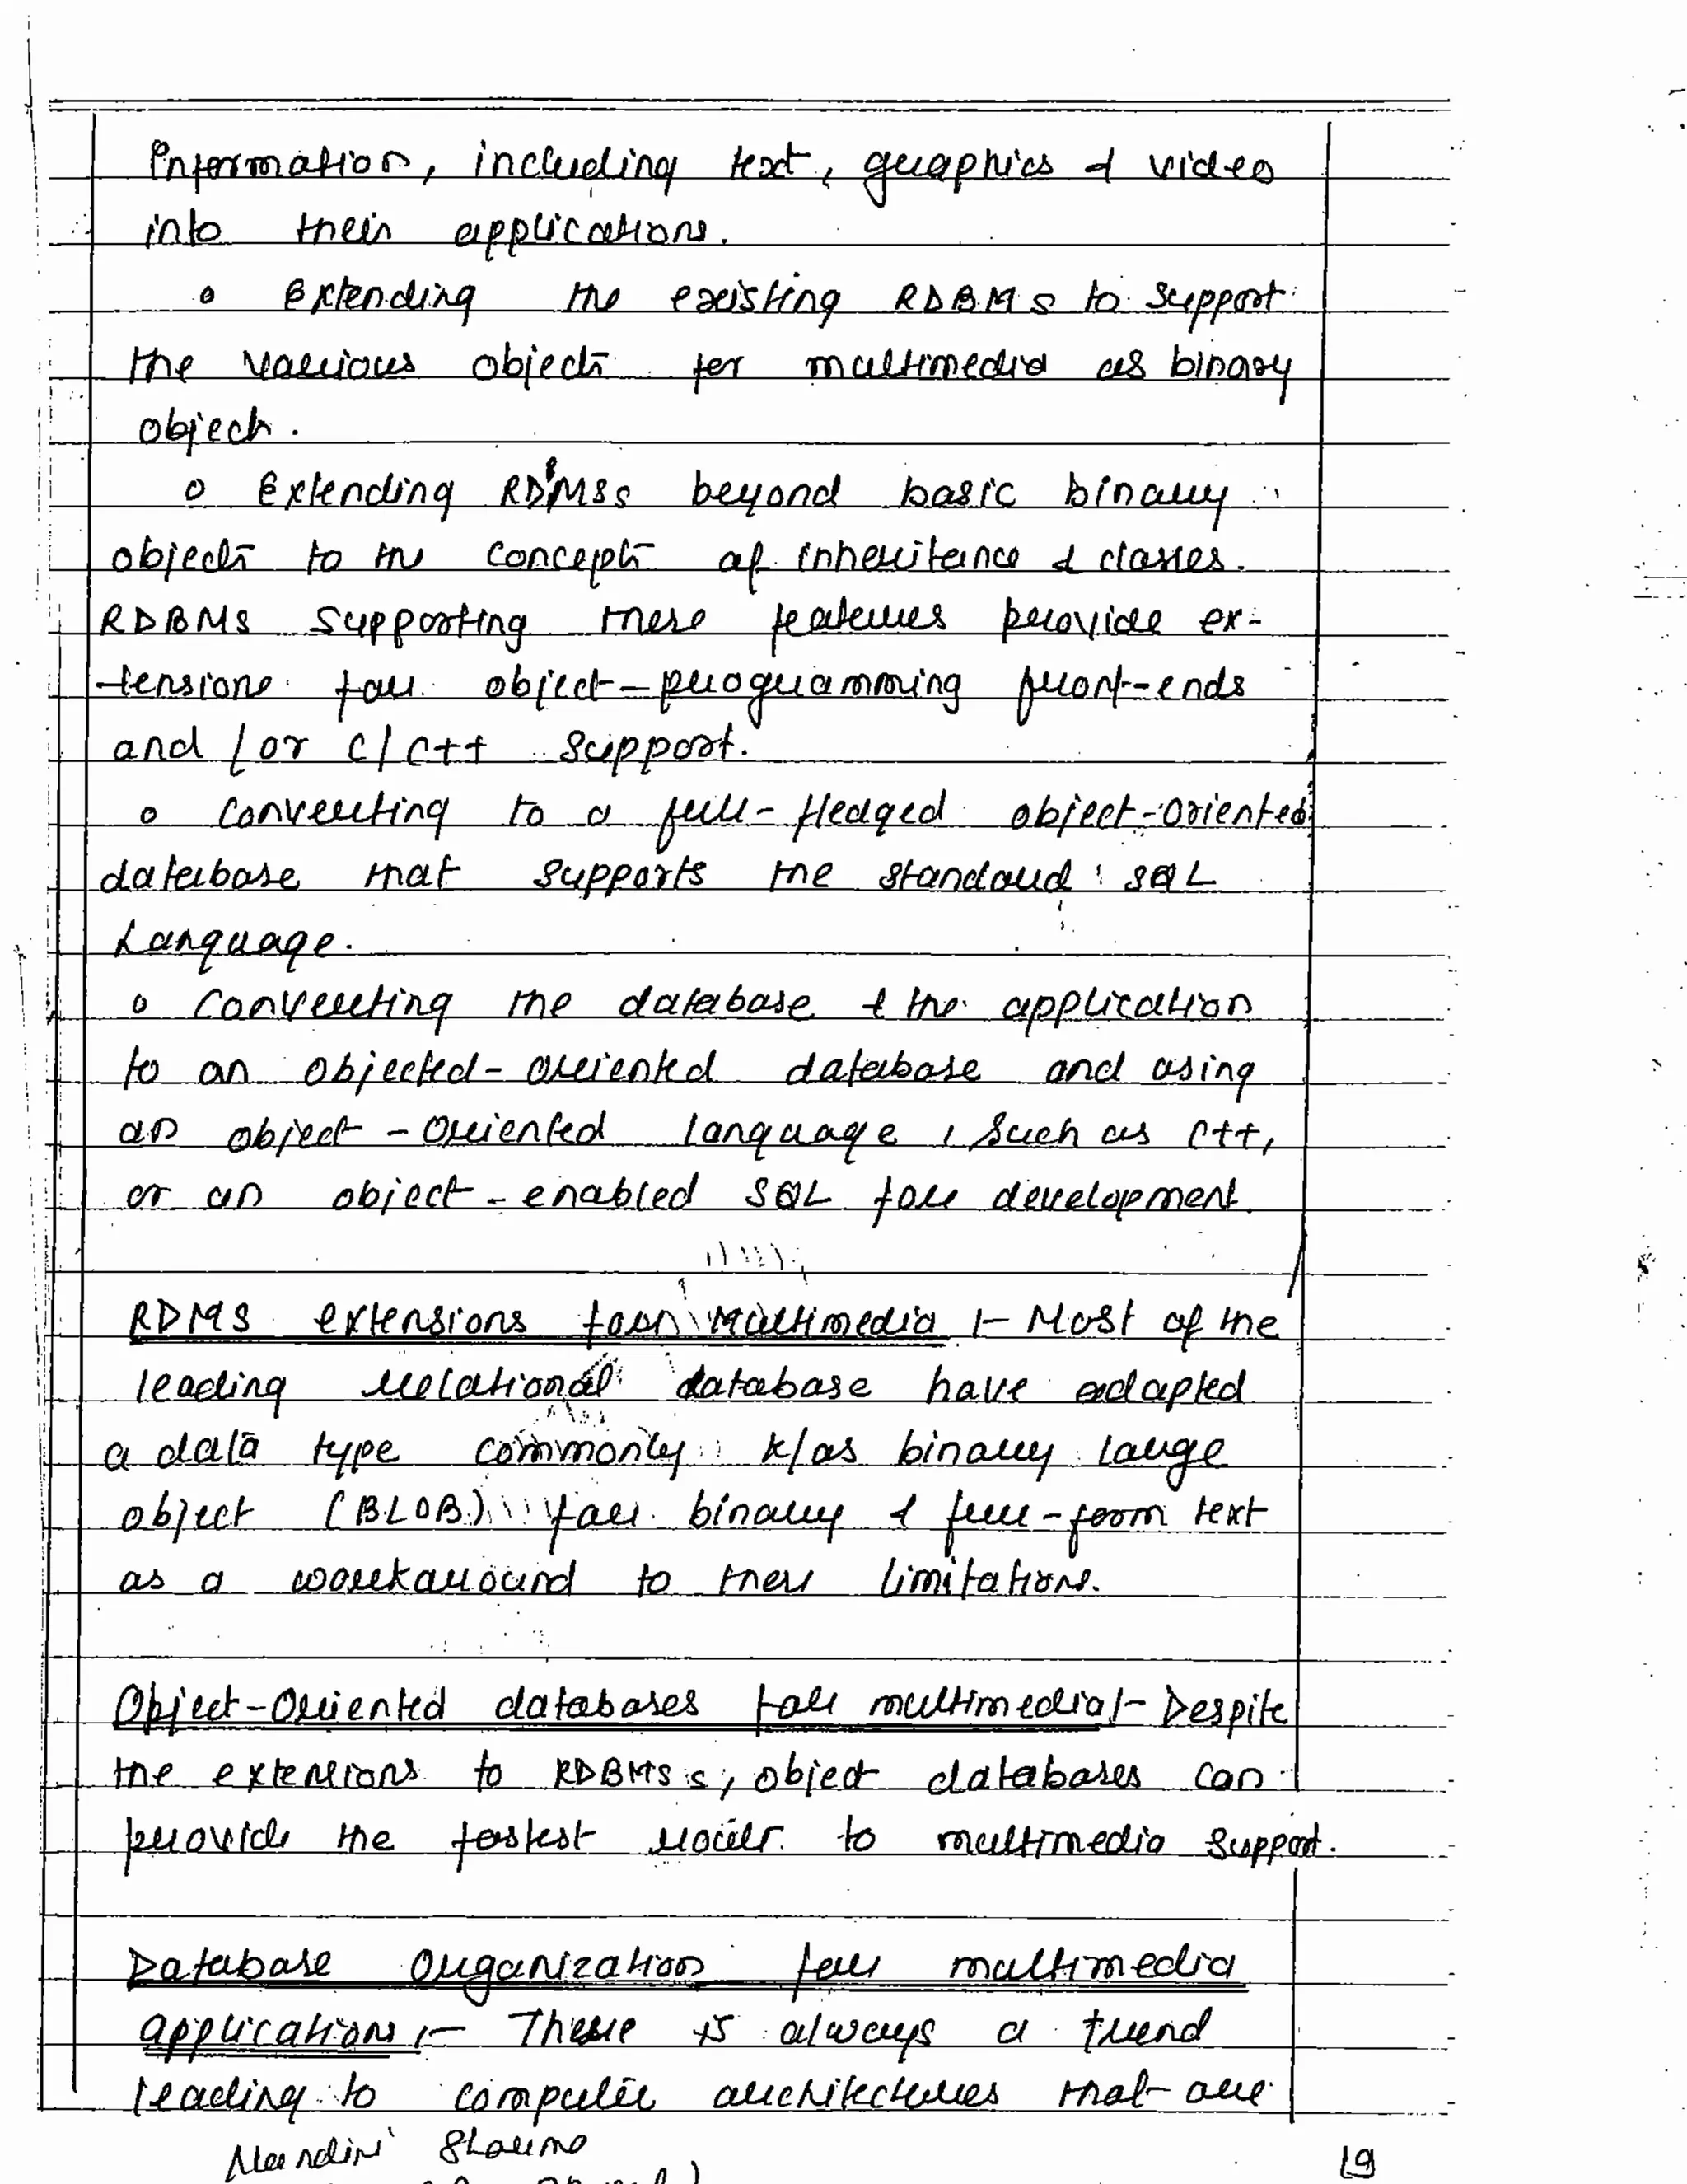 Information, including text, graphics & video
into their applications.
o Extending the existing RDBMS to support
the various objects for multimedia as binary
objects.
o Extending RDBMSs beyond basic binary
objects to the concepts of inheritance & classes.
RDBMS supporting these features provide ex-
-tensions for object-programming front-ends
and/or C/C++ support.
o Converting to a full-fledged object-oriented
database that supports the standard SQL
Language.
o Converting the database & the application
to an objected-oriented database and using
an object-oriented language, such as C++,
or an object-enabled SQL for development.
RDMS extensions for Multimedia :- Most of the
leading relational database have adapted
a data type commonly k/as binary large
object (BLOB) for binary & free-form text
as a workaround to these limitations.
Object-Oriented databases for multimedia :- Despite
the extensions to RDBMSs, object databases can
provide the fastest route to multimedia support.
Database Organization for multimedia
applications :- There is always a trend
leading to computer architectures that are
Nandini Sharma
19